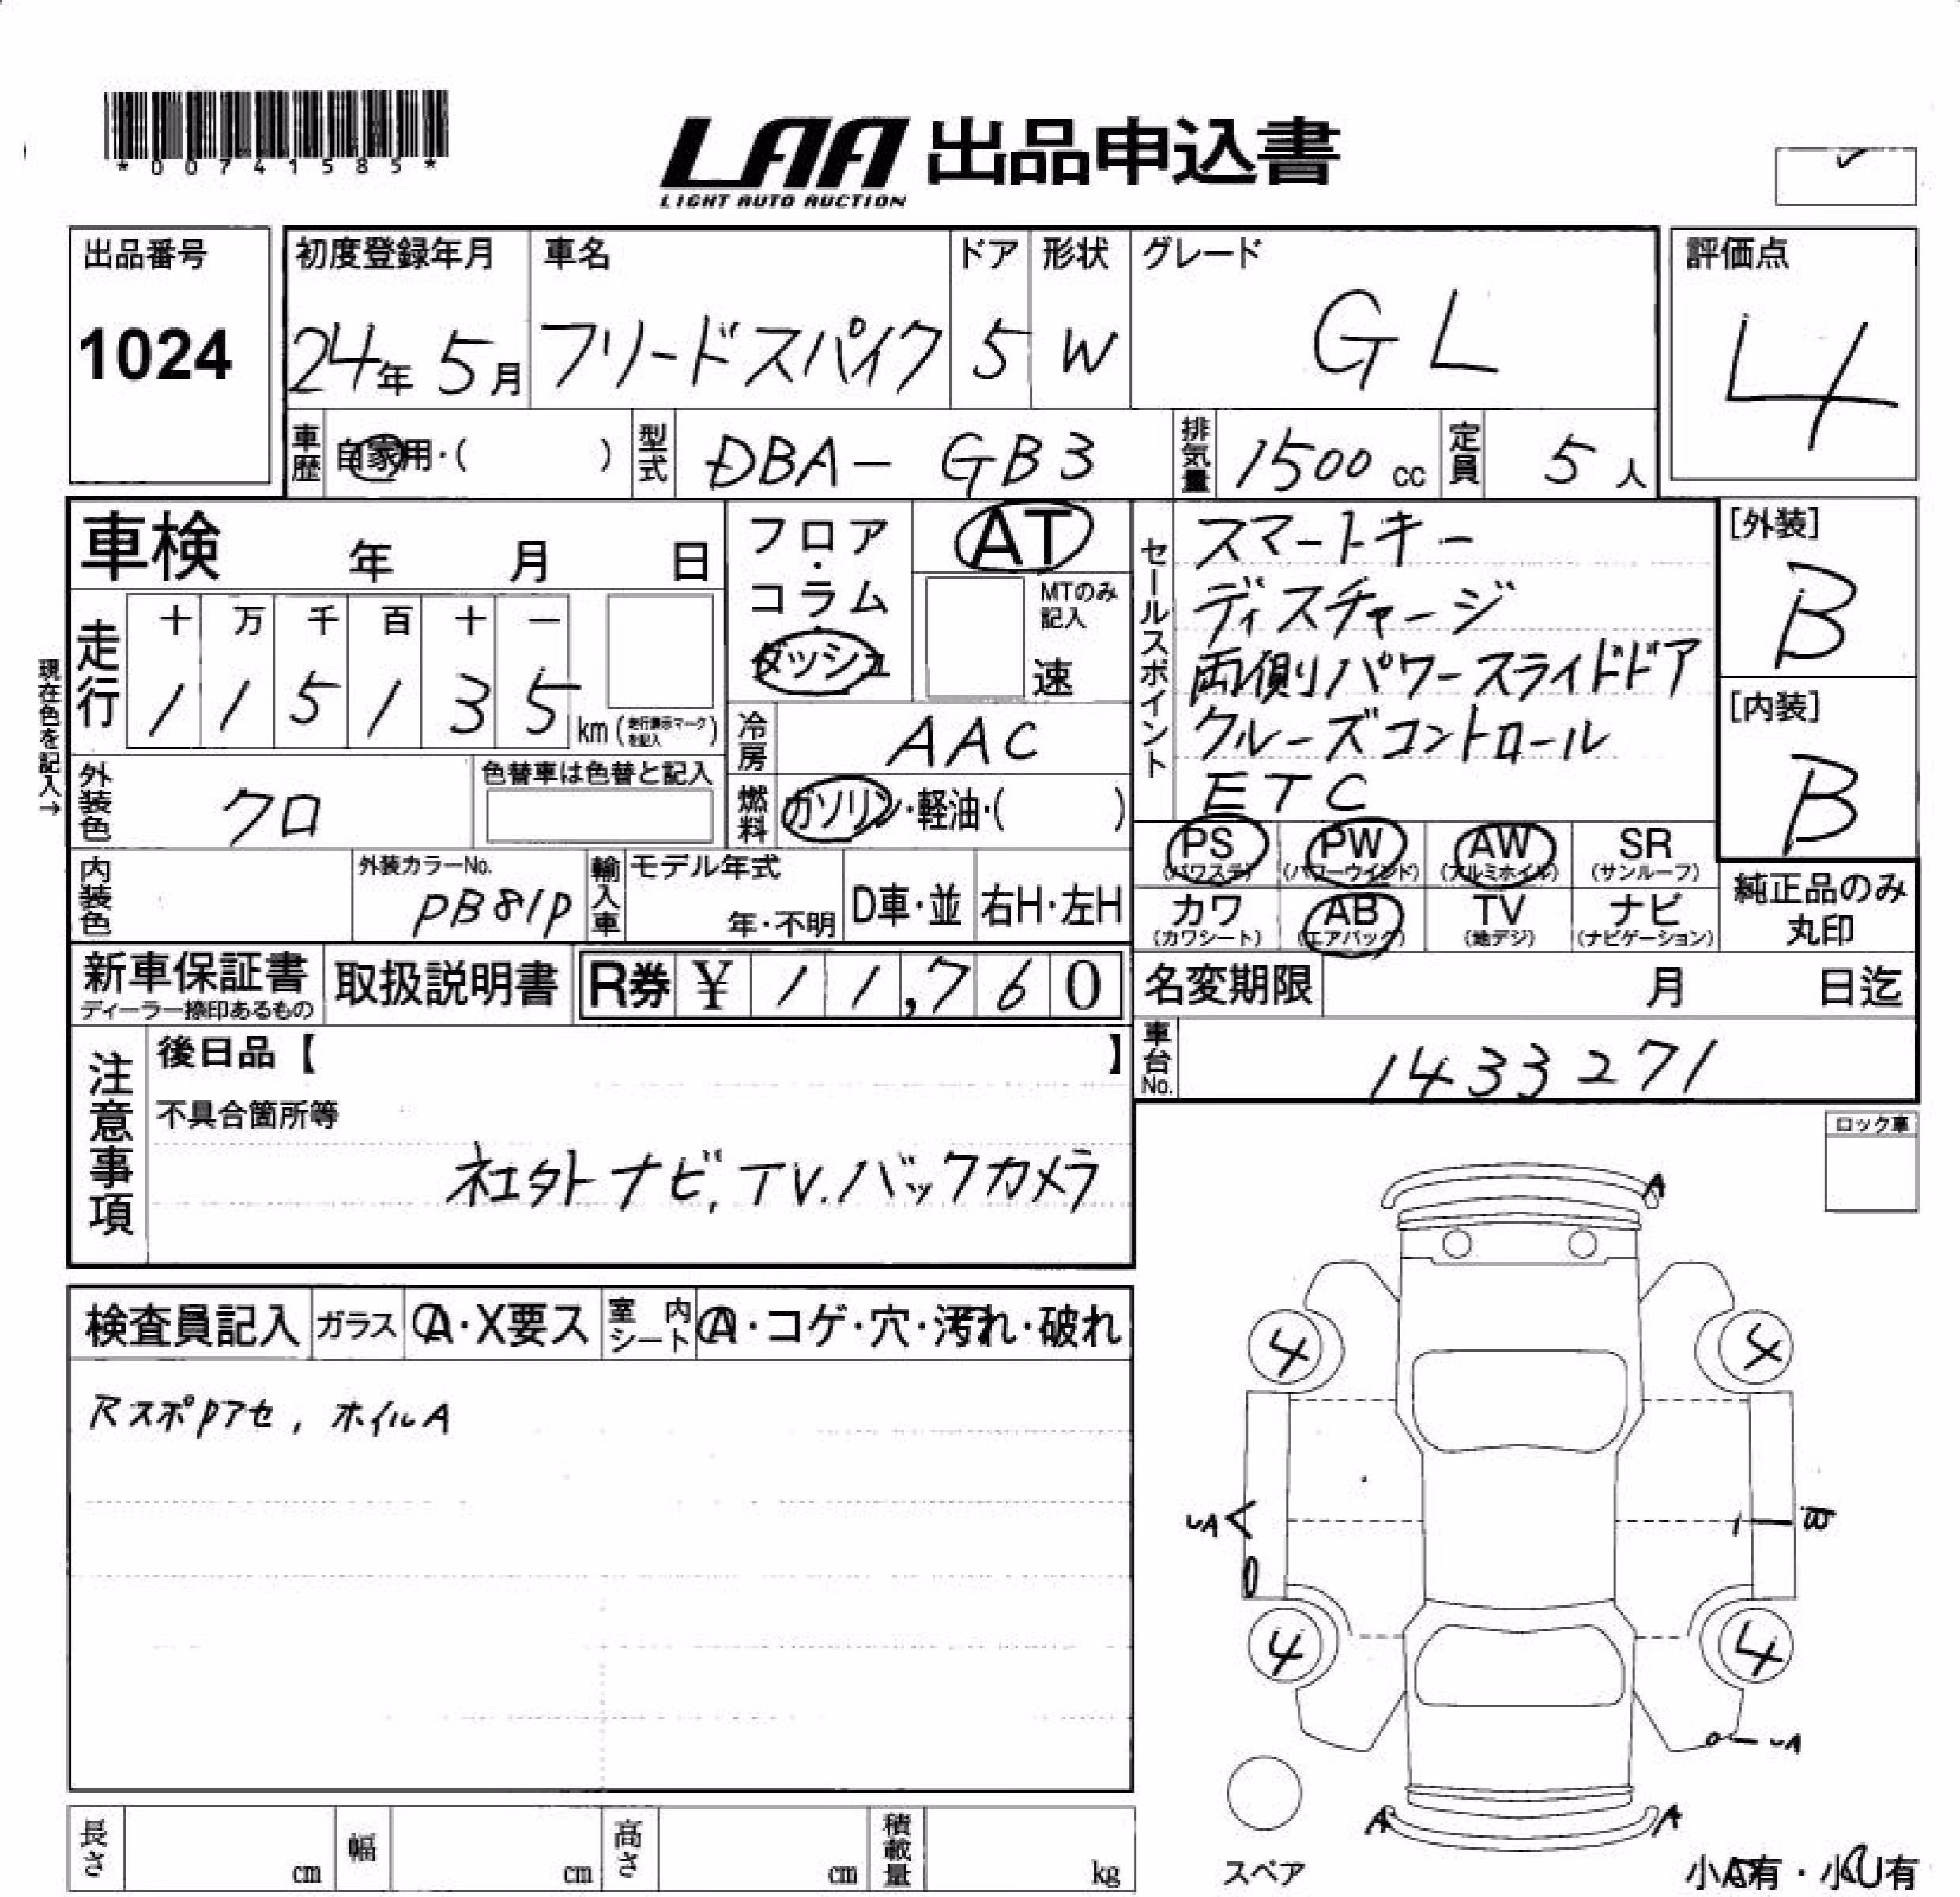 *00741585*
LAA 出品申込書
LIGHT AUTO AUCTION
出品番号
1024
初度登録年月
24年 5月
車名
フリードスパイク
ドア
5
形状
W
グレード
GL
評価点
4
車歴
自家用・( )
型式
DBA- GB3
排気量
1500 cc
定員
5人
車検 年 月 日
現在色を記入→
走行
十 万 千 百 十 一
1 1 5 1 3 5 km (走行表示マークを記入)
外装色
クロ
色替車は色替と記入
内装色
外装カラーNo.
PB81P
輸入車
モデル年式
年・不明
D車・並
右H・左H
フロア・コラム・ダッシュ
AT
MTのみ記入
速
冷房
AAC
燃料
ガソリン・軽油・( )
セールスポイント
スマートキー
ディスチャージ
両側りパワースライドドア
クルーズコントロール
ETC
[外装]
B
[内装]
B
PS (パワステ)
PW (パワーウインド)
AW (アルミホイル)
SR (サンルーフ)
カワ (カワシート)
AB (エアバック)
TV (地デジ)
ナビ (ナビゲーション)
純正品のみ
丸印
新車保証書
ディーラー捺印あるもの
取扱説明書
R券 ¥ 11,760
名変期限 月 日迄
車台No.
1433271
注意事項
後日品【 】
不具合箇所等
社外ナビ,TV.バックカメラ
ロック車
検査員記入
ガラス
A・X要ス
室内シート
A・コゲ・穴・汚れ・破れ
RスポPアセ, ホイルA
A
4
4
4
4
A
A
スペア
小A有・小U有
長さ cm
幅 cm
高さ cm
積載量 kg